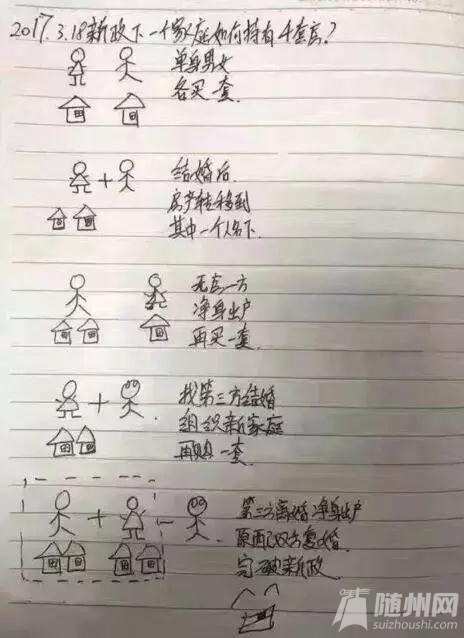 2017.3.18新政下一个家庭如何持有4套房？
单身男女
各买一套.
结婚后
房产转移到
其中一个人名下.
无房一方
净身出户
再买一套.
找第三方结婚
组织新家庭
再购一套.
第三方离婚净身出户
原配双方复婚.
完破新政
随州网
suizhoushi.com